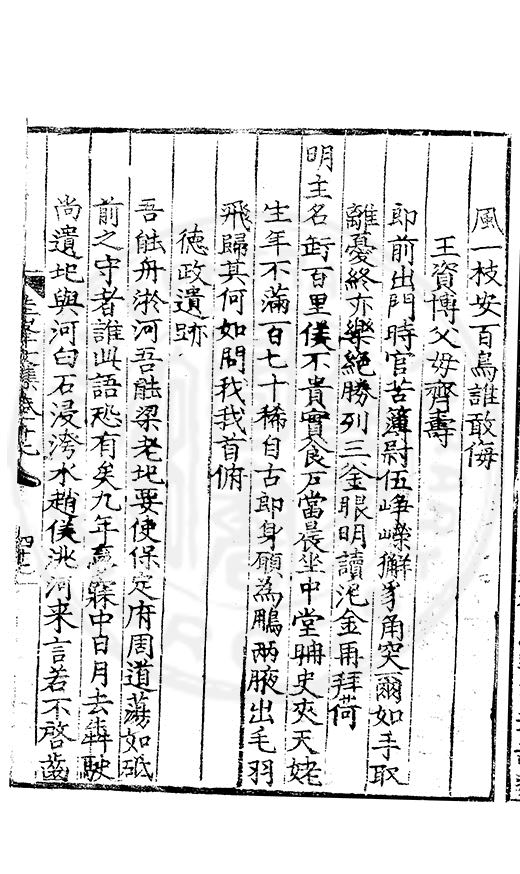 風一枝安百鳥誰敢侮
王資博父母齊壽
即前出門時官苦簿尉伍崢嶸獬豸角突爾如手取
離憂終亦樂絕勝列三釜眼明讀泥金再拜荷
明主名許百里儀不貴實食石當晨坐中堂冊史夾天姥
生年不滿百七十稀自古即身願為鵬兩腋出毛羽
飛歸其何如問我我首俯
德政遺跡
吾能舟淤河吾能梁老圯要使保定府周道蕩如砥
前之守者誰此語恐有矣九年羸縣中日月去犇駛
尚遺圯與河白石浸洿水趙侯洮河来言若不啓齒